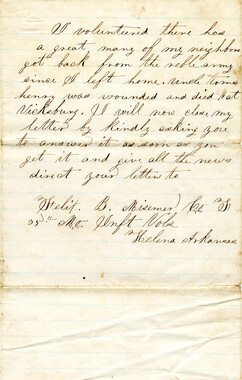 I volunteered there has
a great many of my neighbors
got back from the reble army
since I left home. uncle
henry was wounded and died at
Vicksburg. I will now close my
letter by kindly asking you
to answer it as soon as you
get it and give all the news
direct your letter to
Felix B. Misemer Co
35th Mo Inft Vols
Helena Arkansas